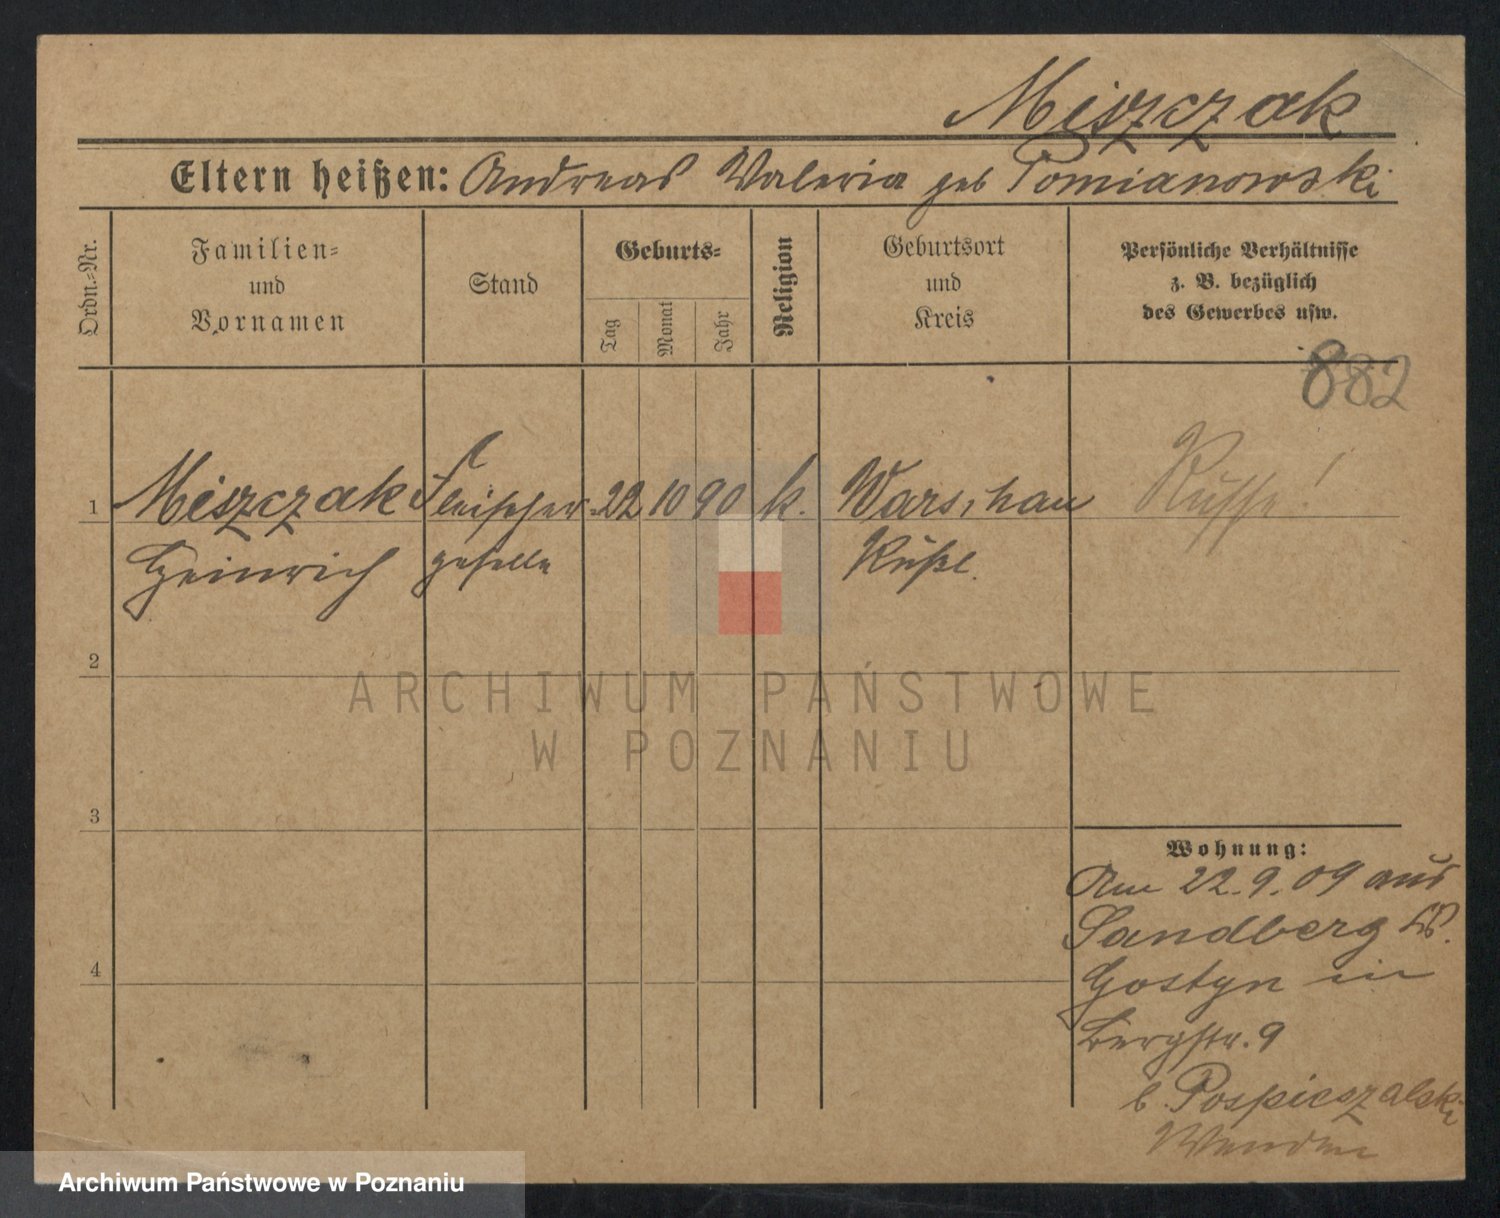 Miszczak
Eltern heißen: Andreas Valeria geb Pomianowski
Ordn.-Nr.
Familien-
und
Vornamen
Stand
Geburts-
Tag
Monat
Jahr
Religion
Geburtsort
und
Kreis
Persönliche Verhältnisse
z. B. bezüglich
des Gewerbes usw.
882
1 Miszczak Fleischer- 22 10 90 k. Warschau Russe!
Heinrich geselle Rußl.
2
ARCHIWUM PAŃSTWOWE
W POZNANIU
3
Wohnung:
Am 22.9.09 aus
Sandberg
4
Gostyn in
Bergstr. 9
b. Pospieszalski
Archiwum Państwowe w Poznaniu